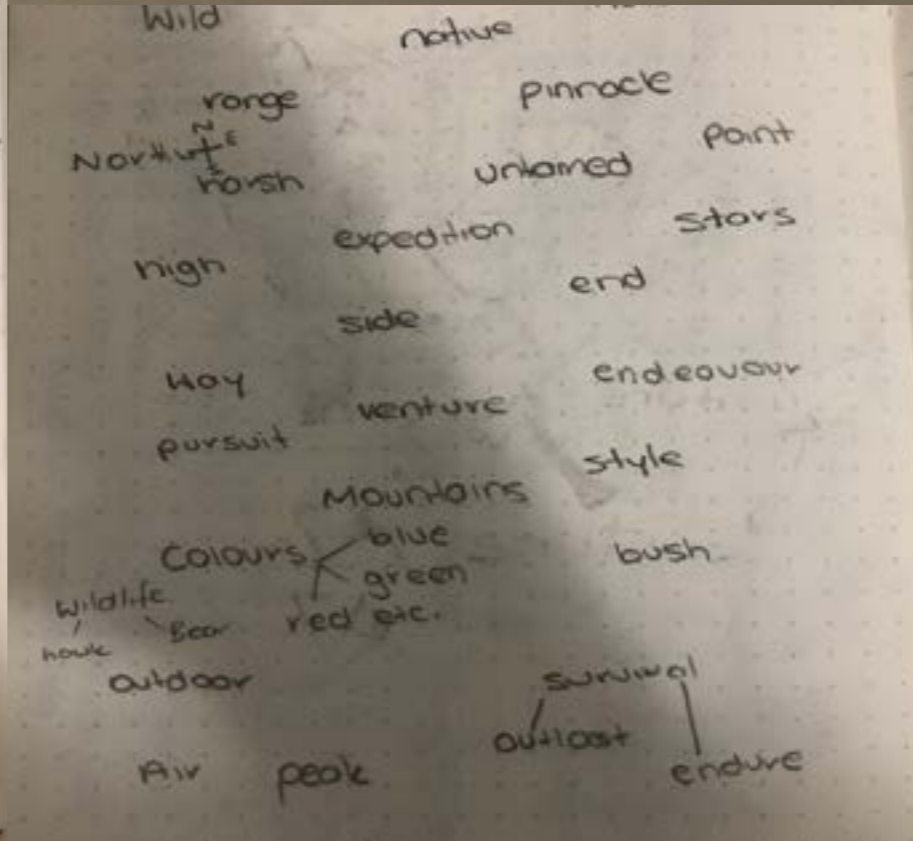 Wild
native
range
pinnacle
N
E
S
North
point
harsh
untamed
expedition
stars
high
end
side
way
endeavour
venture
pursuit
style
Mountains
Colours
blue
green
red etc.
bush
wildlife
hawk
Bear
outdoor
survival
outlast
endure
Air
peak